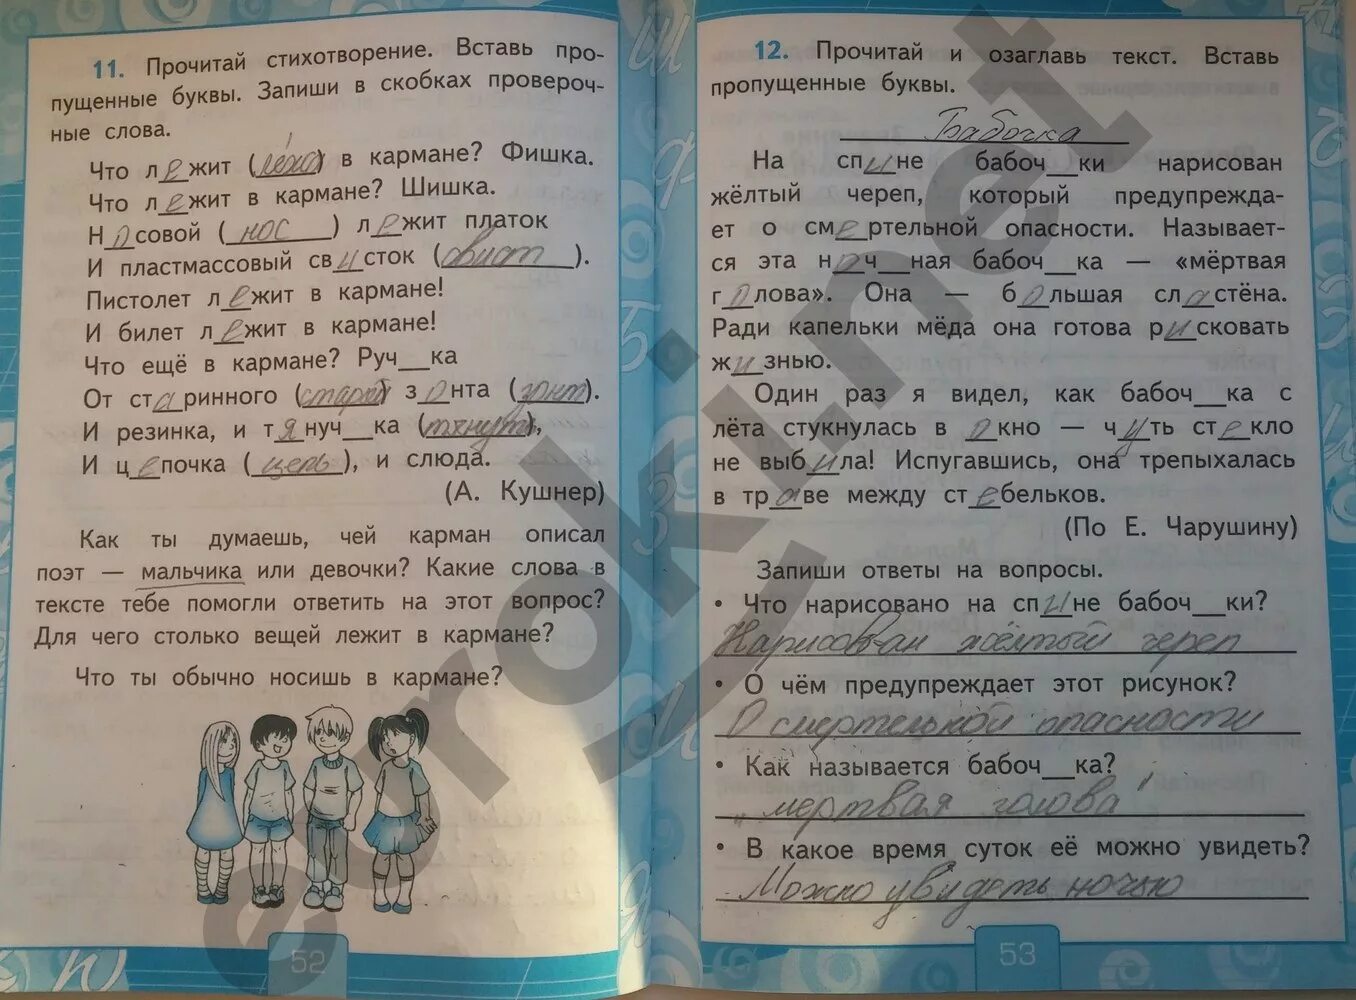 11. Прочитай стихотворение. Вставь про-
пущенные буквы. Запиши в скобках провероч-
ные слова.
Что лежит (лёжа) в кармане? Фишка.
Что лежит в кармане? Шишка.
Носовой (нос) лежит платок
И пластмассовый свисток (свист).
Пистолет лежит в кармане!
И билет лежит в кармане!
Что ещё в кармане? Руч__ка
От старинного (старый) зонта (зонт).
И резинка, и тянуч__ка (тянут),
И цепочка (цепь), и слюда.
(А. Кушнер)
Как ты думаешь, чей карман описал
поэт — мальчика или девочки? Какие слова в
тексте тебе помогли ответить на этот вопрос?
Для чего столько вещей лежит в кармане?
Что ты обычно носишь в кармане?
52
12. Прочитай и озаглавь текст. Вставь
пропущенные буквы.
Бабочка
На спине бабоч__ки нарисован
жёлтый череп, который предупрежда-
ет о смертельной опасности. Называет-
ся эта ноч__ная бабоч__ка — «мёртвая
голова». Она — большая сластёна.
Ради капельки мёда она готова рисковать
жизнью.
Один раз я видел, как бабоч__ка с
лёта стукнулась в окно — чуть стекло
не выбила! Испугавшись, она трепыхалась
в траве между стебельков.
(По Е. Чарушину)
Запиши ответы на вопросы.
• Что нарисовано на спине бабоч__ки?
Нарисован жёлтый череп
• О чём предупреждает этот рисунок?
О смертельной опасности
• Как называется бабоч__ка?
мертвая голова"
• В какое время суток её можно увидеть?
Можно увидеть ночью
53
euroki.net